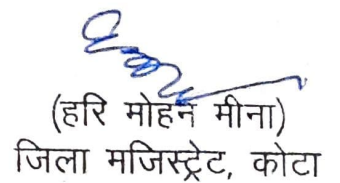 (हरि मोहन मीना)
जिला मजिस्ट्रेट, कोटा